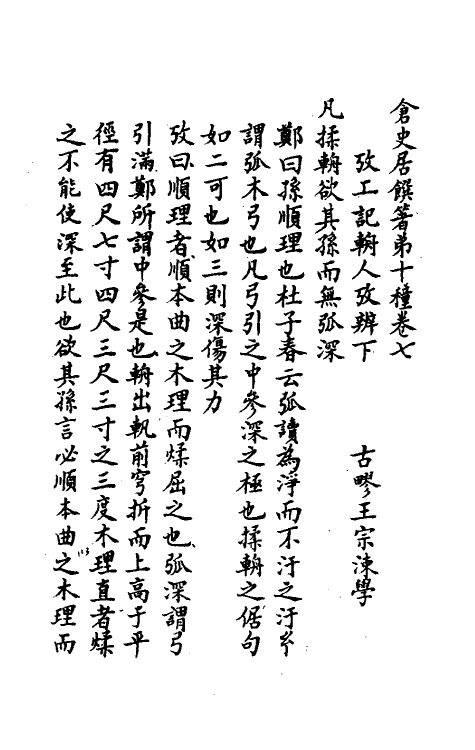 倉史居饌著弟十種卷七
攷工記輈人攷辨下　古疁王宗涑學
凡揉輈欲其孫而無弧深
鄭曰孫順理也杜子春云弧讀為淨而不汙之汙𢆉
謂弧木弓也凡弓引之中參深之極也揉輈之倨句
如二可也如三則深傷其力
攷曰順理者順本曲之木理而煣屈之也弧深謂弓
引滿鄭所謂中參是也輈出軓前穹折而上高于平
徑有四尺七寸四尺三尺三寸之三度木理直者煣
之不能使深至此也欲其孫言必順本曲之木理而